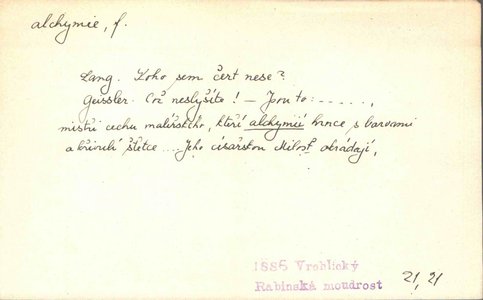 alchymie, f.
Lang. Koho sem čert nese?
Geissler. Což neslyšíte! — Jsou to: - - - - - ,
mistři cechu malířského, kteří alchymií hrnce s barvami
a štětce .... Jeho císařskou Milost okrádají,
1886 Vrchlický
Rabínská moudrost 21, 21